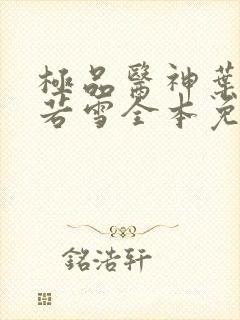 極品醫神葉
若雪全本免
銘浩轩